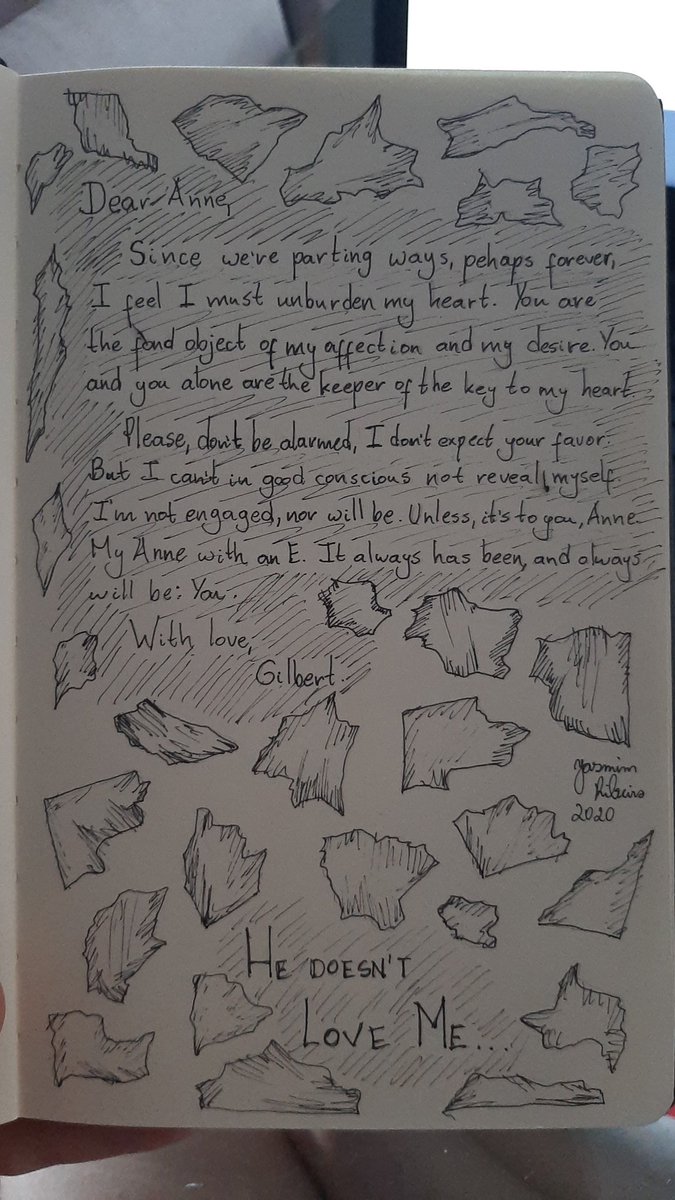 Dear Anne,
Since we're parting ways, pehaps forever,
I feel I must unburden my heart. You are
the fond object of my affection and my desire. You
and you alone are the keeper of the key to my heart.
Please, don't be alarmed, I don't expect your favor.
But I can't in good conscious not reveal myself.
I'm not engaged, nor will be. Unless, it's to you, Anne.
My Anne with an E. It always has been, and always
will be: You.
With love,
Gilbert.
Yasmim
Ribeiro
2020
HE DOESN'T
LOVE ME...